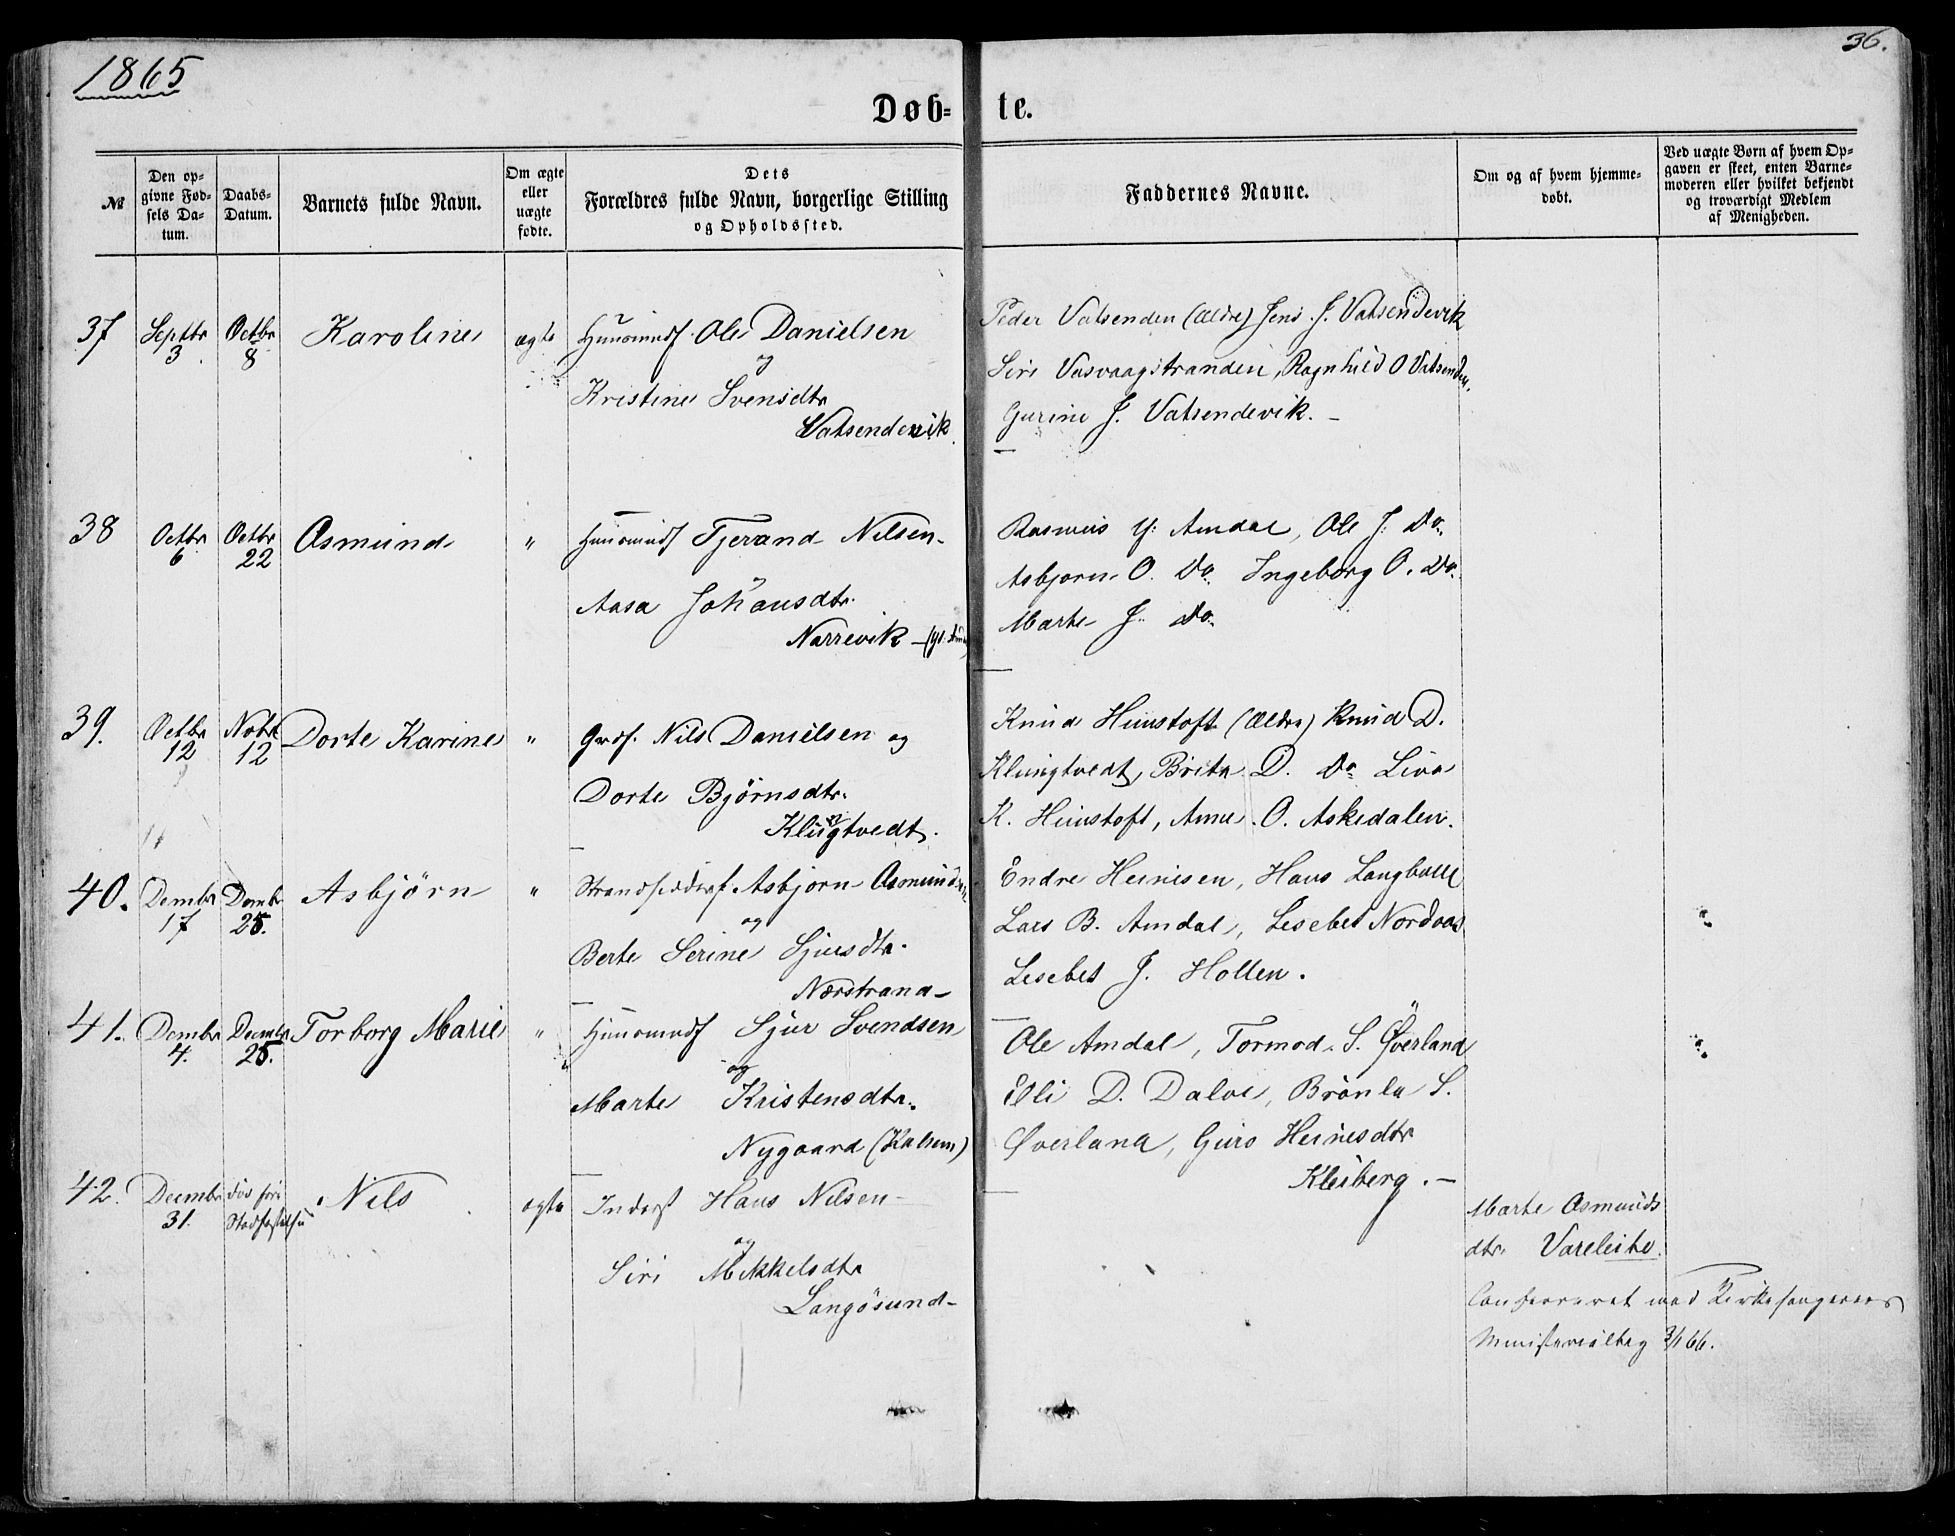 1865
36.
Døb-
te.
№
Den op-
givne Fød-
sels Da-
tum.
Daabs-
Datum.
Barnets fulde Navn.
Om ægte
eller
uægte
fødte.
Dets
Forældres fulde Navn, borgerlige Stilling
og Opholdssted.
Faddernes Navne.
Om og af hvem hjemme-
døbt.
Ved uægte Børn af hvem Op-
gaven er skeet, enten Barne-
moderen eller hvilket bekjendt
og troværdigt Medlem
af Menigheden.
37 Septbr 3. Octbr 8 Karoline ægte Huusmd. Ole Danielsen
og
Kristine Svensdtr
Vatsendevik.
Peder Vatsenden (Ældre) Jens J. Vatsendevik
Siri Vasvaagstranden, Ragnhild O Vatsenden,
Gurine J. Vatsendevik. –
38 Octbr 6 Octbr 22 Osmund " Huusmd Tjerand Nilsen
Aasa Johansdtr.
Narrevik –
Rasmus Amdal, Ole J. Do.
Asbjørn O. Do. Ingeborg O. Do.
Marte J. Do.
39. Octbr 12 Nobr 12 Dorte Karine " Grdf. Nils Danielsen og
Dorte Bjørnsdtr.
Klungtvedt.
Knud Himstoft (Ældre) Knud D.
Klungtvedt, Brita D. Do Liva
K. Himstoft, Anne O. Askedalen.
40. Dembr 17 Dembr 25. Asbjørn " Strandsidder Asbjørn Osmundsen
og
Berte Serine Sjursdtr.
Nærstrand –
Endre Heinesen, Hans Langballe
Lars B. Amdal, Lesebet Nordaas
Lesebet J. Hollen.
41. Dembr 4. Decmbr 25. Torborg Marie " Huusmd Sjur Svendsen
og
Marte Kristensdtr.
Nygaard (Halsem)
Ole Amdal, Tormod S. Øverland
Elli D. Dalve, Brønla S.
Øverland, Guro Heinesdtr
Kleiberg. –
42. Decmbr 31. død før Stadfæstelsen Nils ægte Inderst Hans Nilsen
og
Siri Mikkelsdtr
Langøsund –
Marte Osmunds
dtr. Vareleite.
Confereret med Kirkesangerens
Ministerialbog 3/1 66.